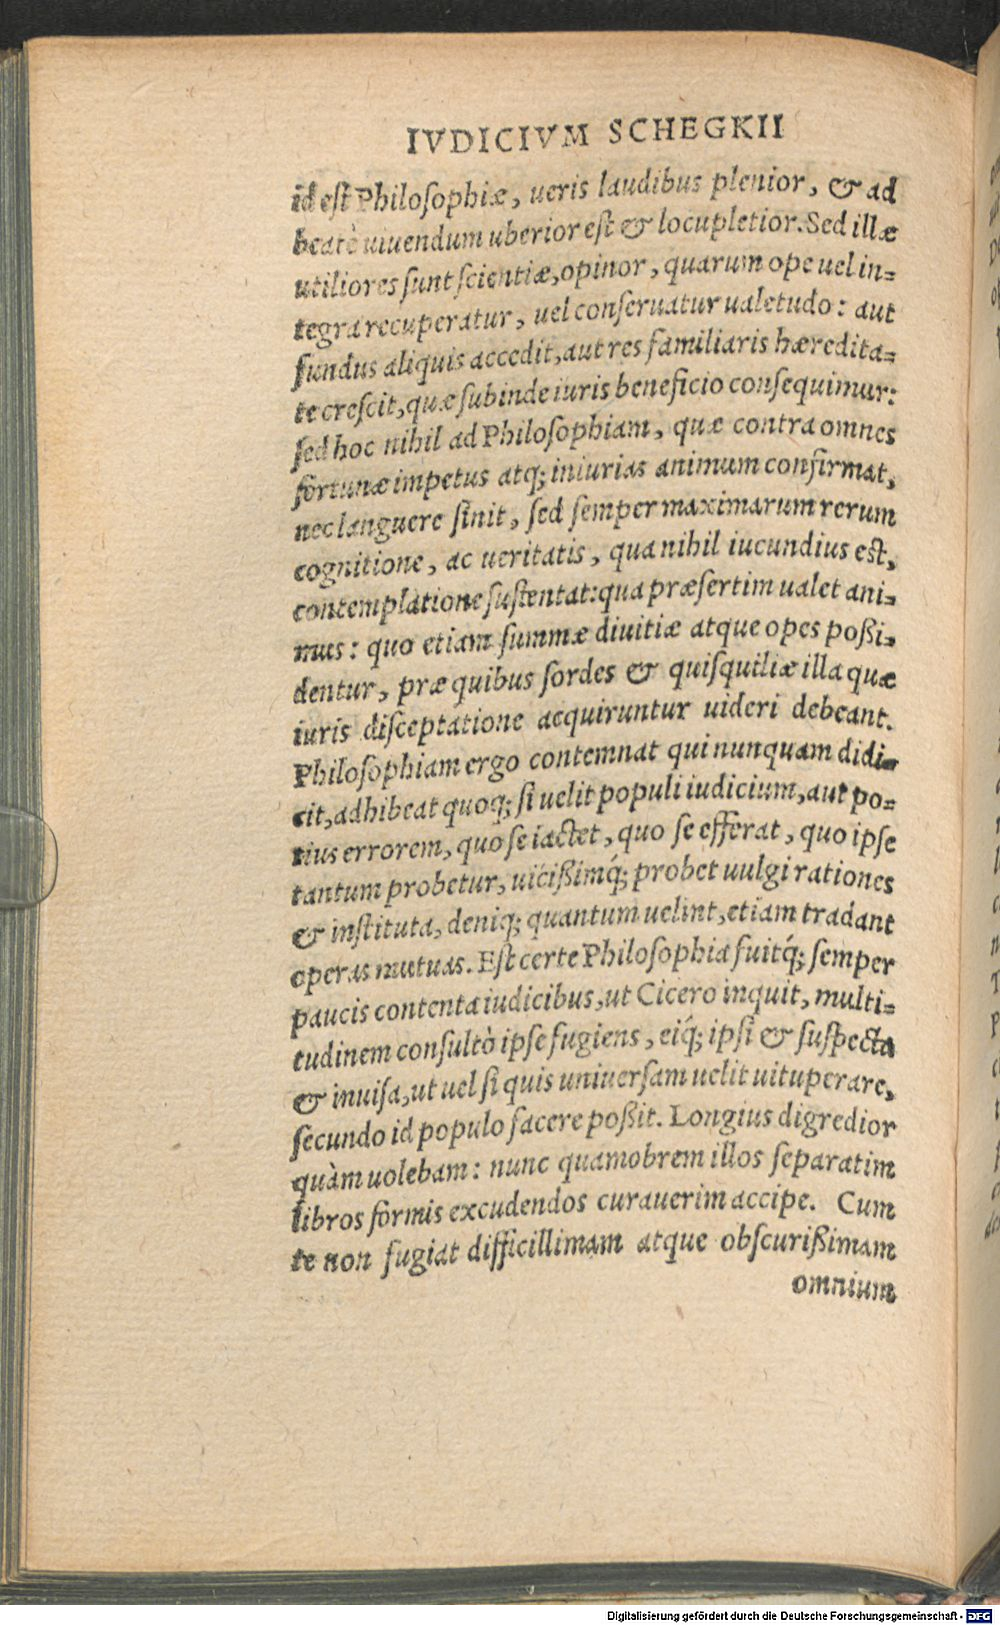 IVDICIVM SCHEGKII
id eſt Philoſophiæ, ueris laudibus plenior, & ad
beatè uiuendum uberior eſt & locupletior. Sed illæ
utiliores ſunt ſcientiæ, opinor, quarum ope uel in-
tegra recuperatur, uel conſeruatur ualetudo: aut
fundus aliquis accedit, aut res familiaris hæredita-
te creſcit, quæ ſubinde iuris beneficio conſequimur:
ſed hoc nihil ad Philoſophiam, quæ contra omnes
fortunæ impetus atq; iniurias animum confirmat,
nec languere ſinit, ſed ſemper maximarum rerum
cognitione, ac ueritatis, qua nihil iucundius eſt,
contemplatione ſuſtentat: qua præſertim ualet ani-
mus: quo etiam ſummæ diuitiæ atque opes poßi-
dentur, præ quibus ſordes & quiſquiliæ illa quæ
iuris diſceptatione acquiruntur uideri debeant.
Philoſophiam ergo contemnat qui nunquam didi-
cit, adhibeat quoq; ſi uelit populi iudicium, aut po-
tius errorem, quo ſe iactet, quo ſe efferat, quo ipſe
tantum probetur, uicißimq́; probet uulgi rationes
& inſtituta, deniq; quantum uelint, etiam tradant
operas mutuas. Eſt certe Philoſophia fuitq́; ſemper
paucis contenta iudicibus, ut Cicero inquit, multi-
tudinem conſultò ipſe fugiens, eiq́; ipſi & ſuſpecta
& inuiſa, ut uel ſi quis uniuerſam uelit uituperare,
ſecundo id populo facere poßit. Longius digredior
quàm uolebam: nunc quamobrem illos ſeparatim
libros formis excudendos curauerim accipe. Cum
te non fugiat difficillimam atque obſcurißimam
omnium
Digitalisierung gefördert durch die Deutsche Forschungsgemeinschaft - DFG